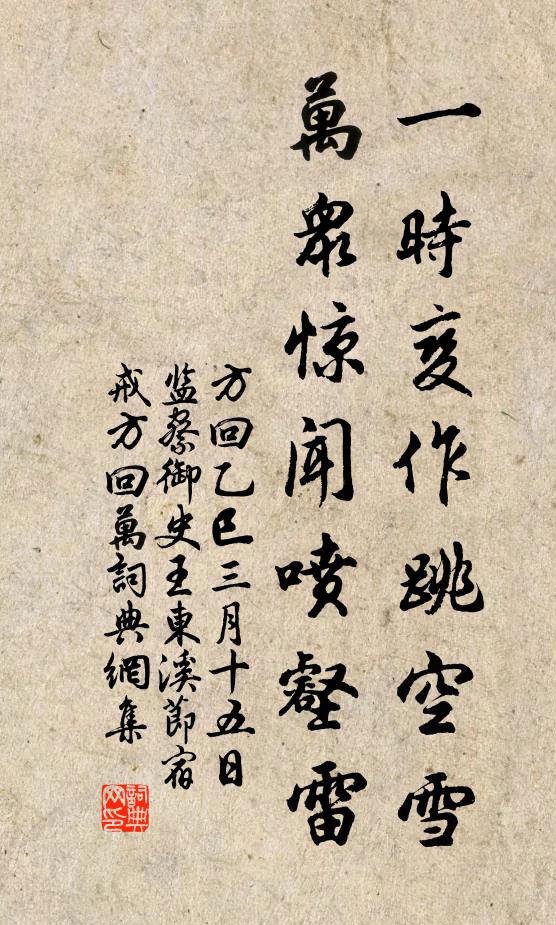 一時变作跳空雪
萬眾惊聞喷壑雷
方回乙巳三月十五日
监察御史王東溪節宿
戒方回萬詞典網集
詞典网印